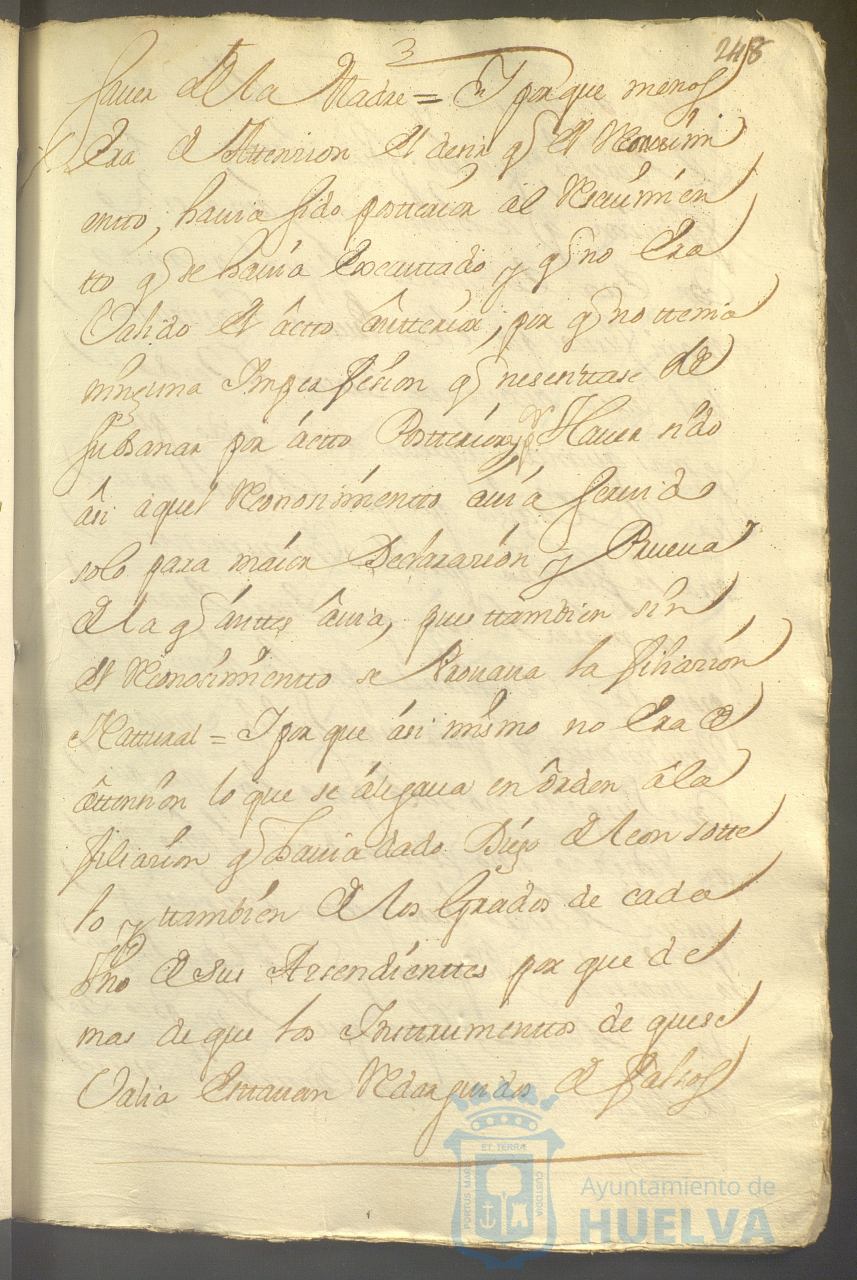 3
248
fauer de la Madre = Y porque menos
Era de Attenzion el dezir q el Reconosim
entto, hauia sido postterior al Resiuimien
tto q se hauia Executtado, y q no Era
Valido el actto antterior, por q no ttenia
ninguna Imperfesion q nesesittase de
subsanar por actto Postterior, y Hauer sido
asi aquel Reconosimientto auia seruido
solo para maior Declarazion y Prueua
de la q anttes auia, pues ttambien sin
el Reconosimientto se Prouaua la filiazion
Nattural = Y porque asi mismo no Era de
attenzion lo que se alegaua en orden a la
filiazion q hauia dado Diego de leon sotte
lo, y ttambien de los Grados de cada
Vno de sus Aszendienttes porque de
mas de que los Insttrumenttos de que se
Valia esttauan Redarguidos de falsos
ET TERRÆ
PORTUS MARIS
CUSTODIA
Ayuntamiento de
HUELVA